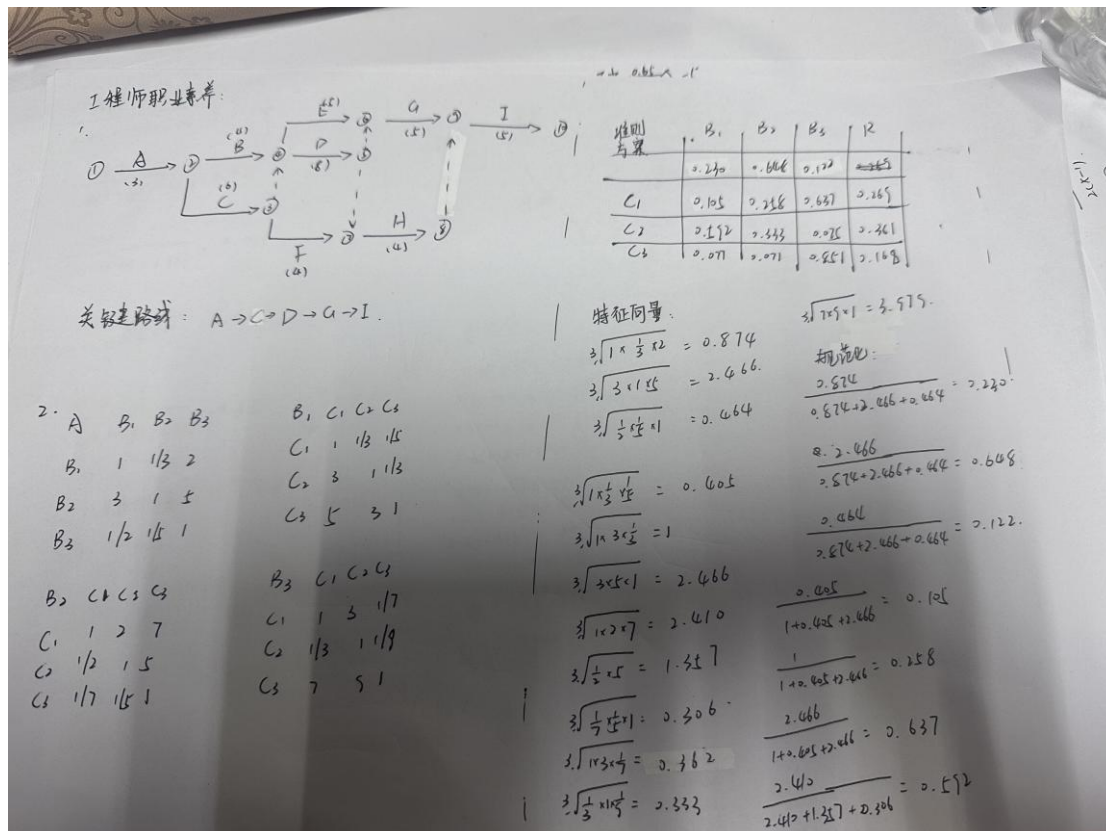 工程师职业素养:
1.
① A (3) ② B (4) ④ E (5) ⑥ G (5) ⑨ I (5) ⑩
C (6) ③ D (8) ⑤
F (4) ⑦ H (4) ⑧
关键路线: A→C→D→G→I.
2.
A B₁ B₂ B₃
B₁ 1 1/3 2
B₂ 3 1 5
B₃ 1/2 1/5 1
B₁ C₁ C₂ C₃
C₁ 1 1/3 1/5
C₂ 3 1 1/3
C₃ 5 3 1
B₂ C₁ C₂ C₃
C₁ 1 2 7
C₂ 1/2 1 5
C₃ 1/7 1/5 1
B₃ C₁ C₂ C₃
C₁ 1 3 1/7
C₂ 1/3 1 1/9
C₃ 7 9 1
准则 B₁ B₂ B₃ R
方案 0.230 0.648 0.122
C₁ 0.105 0.258 0.637 0.269
C₂ 0.592 0.333 0.075 0.361
C₃ 0.077 0.071 0.851 0.168
特征向量:
∛(1×1/3×2) = 0.874
∛(3×1×5) = 2.466.
∛(1/2×1/5×1) = 0.464
∛(1×1/3×1/5) = 0.405
∛(1×3×1/3) = 1
∛(3×5×1) = 2.466
∛(1×2×7) = 2.410
∛(1/2×5) = 1.357
∛(1/7×1/5×1) = 0.306
∛(1×3×1/7) = 0.362
∛(1/3×1×1/9) = 0.333
∛(7×9×1) = 3.979.
规范化:
0.874/(0.874+2.466+0.464) = 0.230
2.466/(0.874+2.466+0.464) = 0.648
0.464/(0.874+2.466+0.464) = 0.122.
0.405/(1+0.405+2.466) = 0.105
1/(1+0.405+2.466) = 0.258
2.466/(1+0.405+2.466) = 0.637
2.410/(2.410+1.357+0.306) = 0.592